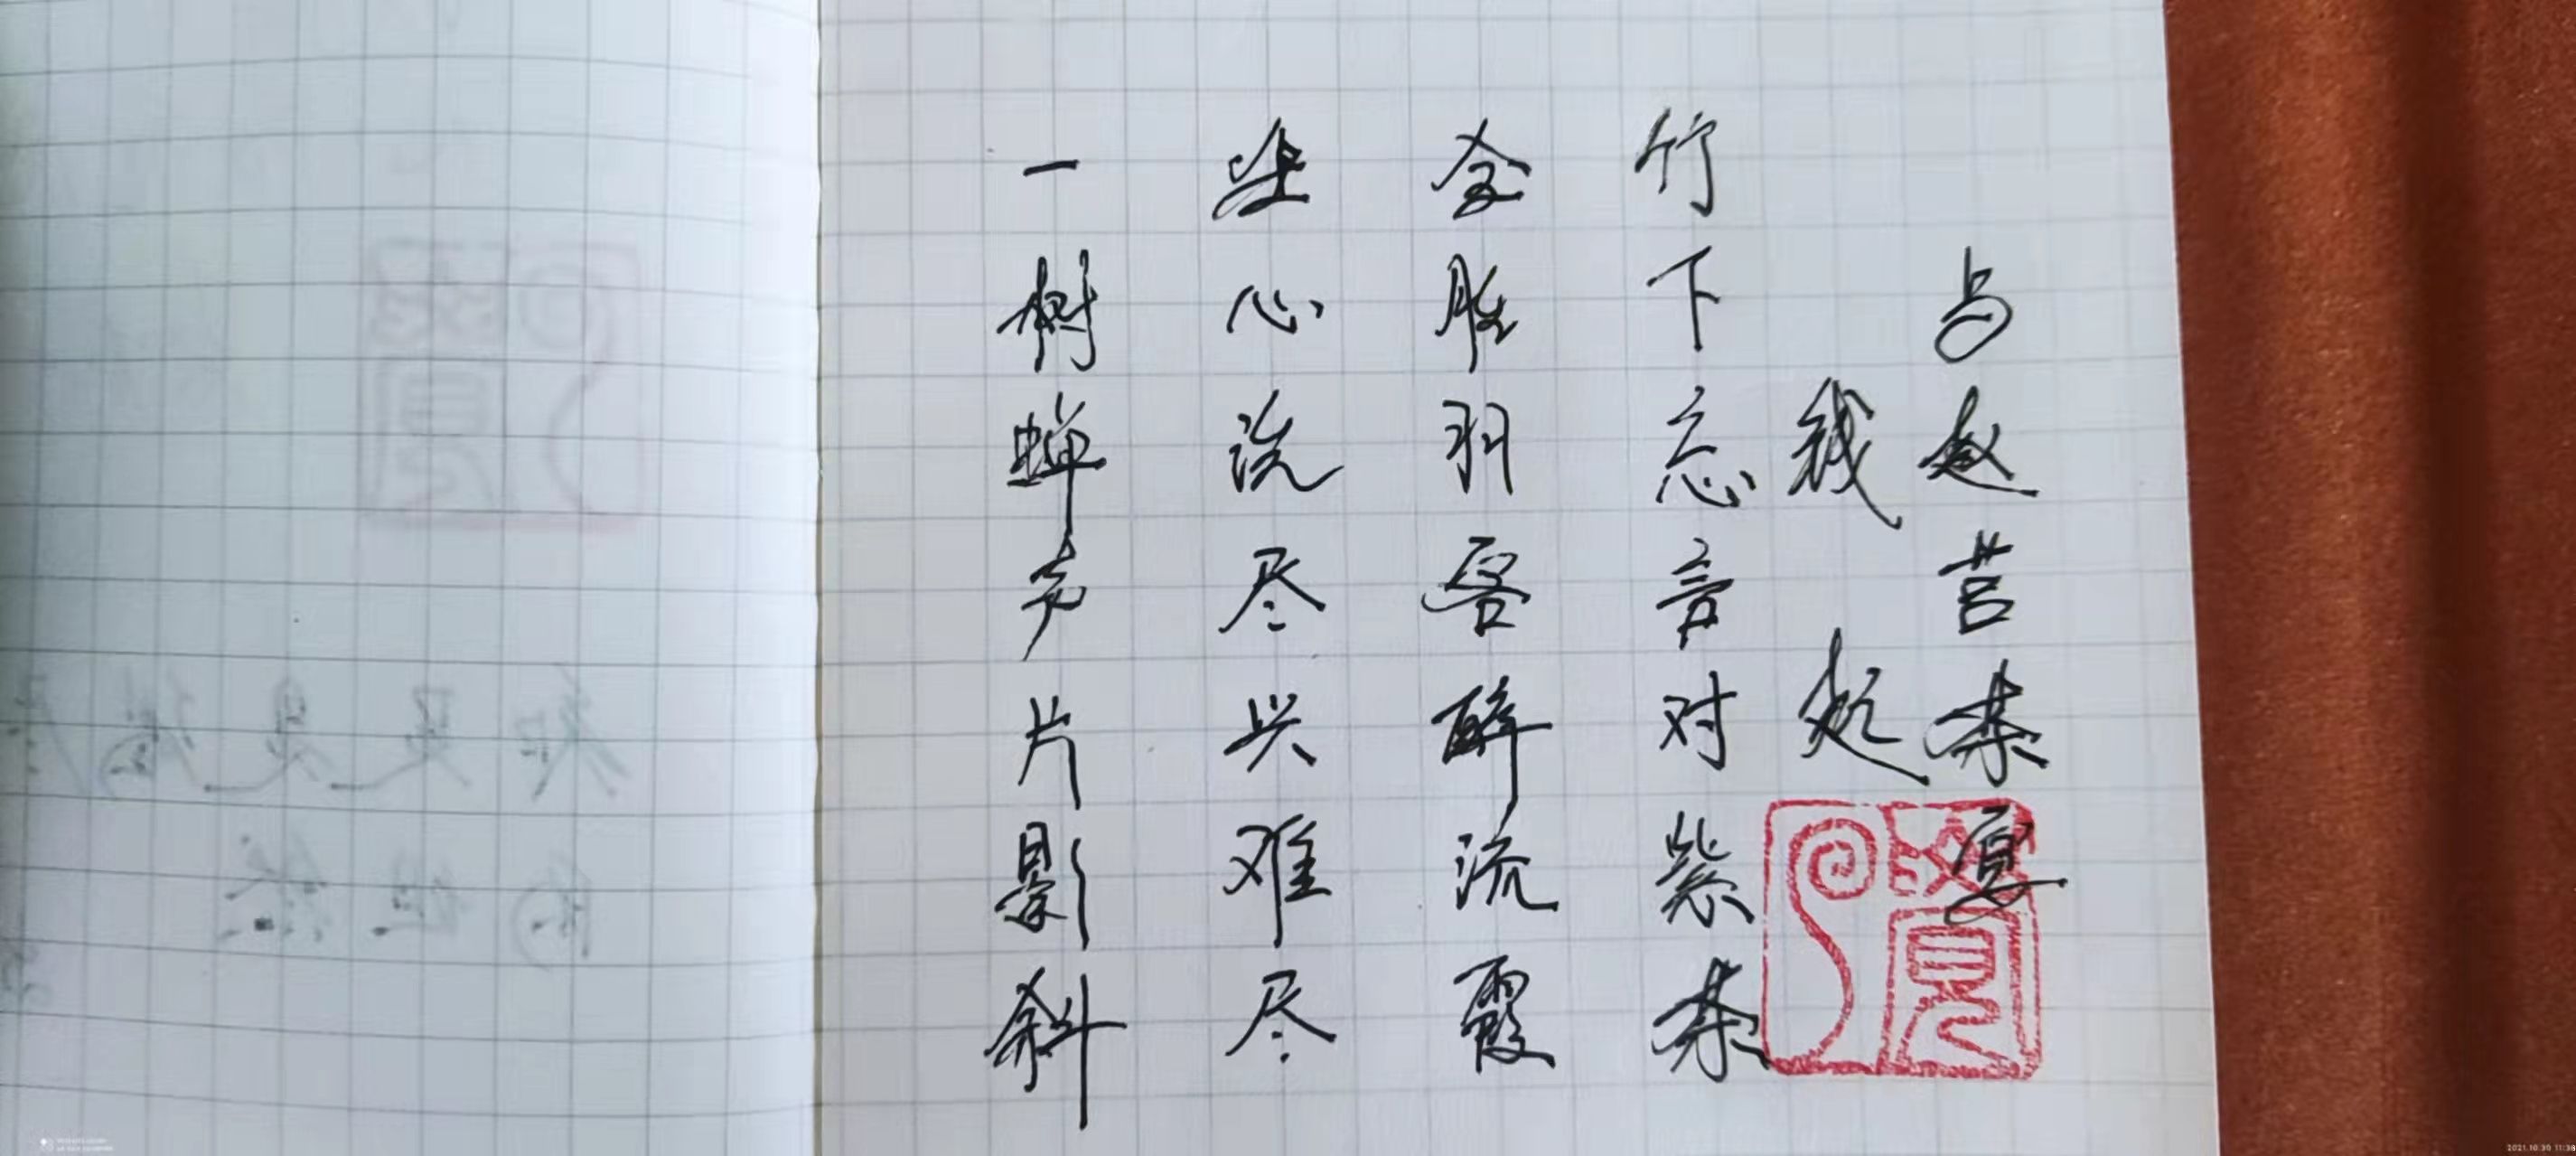 与赵莒茶宴
钱起
竹下忘言对紫茶
全胜羽客醉流霞
尘心洗尽兴难尽
一树蝉声片影斜
2021.10.30 11:38